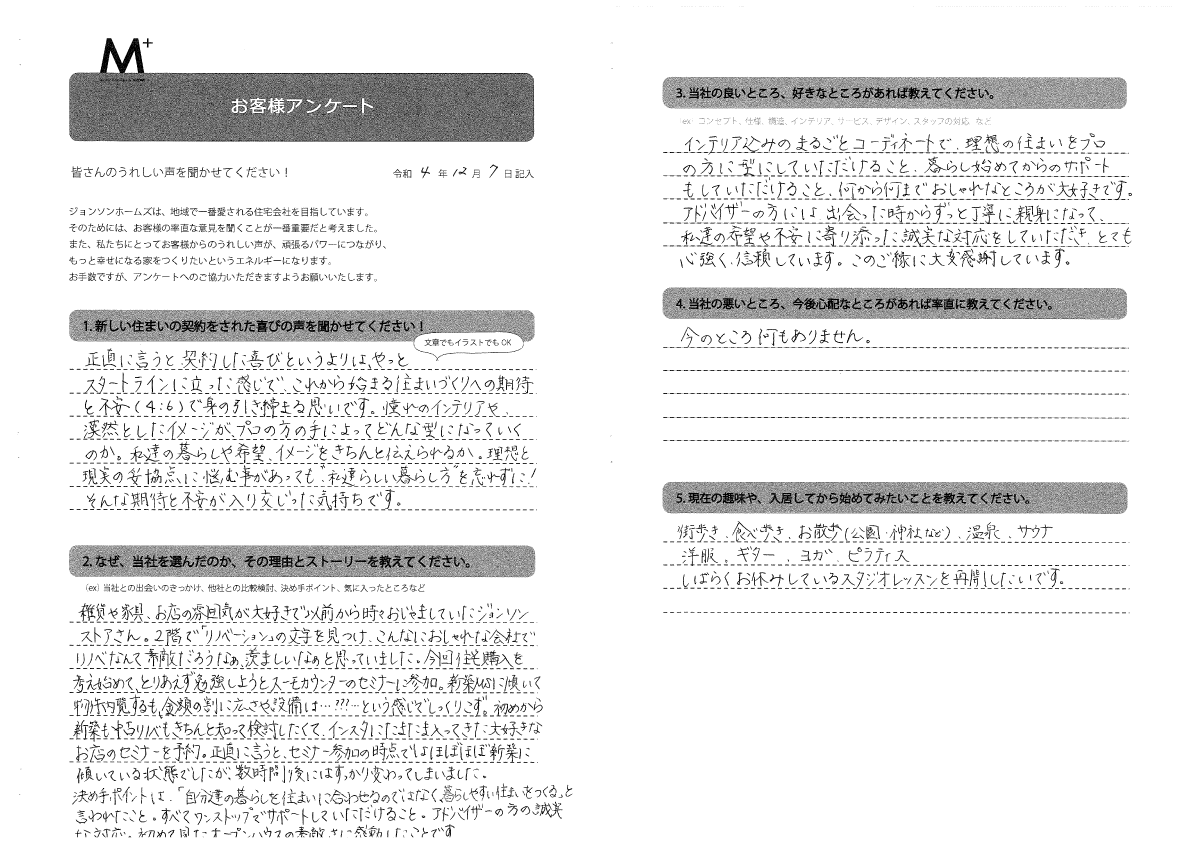 M+
お客様アンケート
皆さんのうれしい声を聞かせてください！
令和 4 年 12 月 7 日記入
ジョンソンホームズは、地域で一番愛される住宅会社を目指しています。
そのためには、お客様の率直な意見を聞くことが一番重要だと考えました。
また、私たちにとってお客様からのうれしい声が、頑張るパワーにつながり、
もっと幸せになる家をつくりたいというエネルギーになります。
お手数ですが、アンケートへのご協力いただきますようお願いいたします。
1. 新しい住まいの契約をされた喜びの声を聞かせてください！
文章でもイラストでも OK
正直に言うと契約した喜びというよりは、やっと
スタートラインに立った感じで、これから始まる住まいづくりへの期待
と不安（4:6）で身の引き締まる思いです。憧れのインテリアや、
漠然としたイメージが、プロの方の手によってどんな型になっていく
のか。私達の暮らしや希望、イメージをきちんと伝えられるか。理想と
現実の妥協点、に悩む事があっても“私達らしい暮らし方”を忘れずに！
そんな期待と不安が入り交じった気持ちです。
2. なぜ、当社を選んだのか、その理由とストーリーを教えてください。
（ex）当社との出会いのきっかけ、他社との比較検討、決め手ポイント、気に入ったところなど
雑貨や家具、お店の雰囲気が大好きで以前から時々おじゃましていたジョンソン
ストアさん。2階で「リノベーション」の文字を見つけ、こんなにおしゃれな会社で
リノベなんて素敵だろうなぁ、羨ましいなぁと思っていました。今回住宅購入を
考え始めて、とりあえず勉強しようとスーモカウンターのセミナーに参加。新築MSに傾いて
物件内覧するも、金額の割に広さや、設備は…???…という感じでしっくりこず。初めから
新築も中古リノベもきちんと知って検討したくて、インスタにたまたま入ってきた大好きな
お店のセミナーを予約。正直に言うと、セミナー参加の時点ではほぼほぼ新築に
傾いている状態でしたが、数時間後にはすっかり変わってしまいました。
決め手ポイントは、「自分達の暮らしを住まいに合わせるのではなく、暮らしやすい住まいをつくる」と
言われたこと。すべてワンストップでサポートしていただけること。アドバイザーの方の誠実
な対応。初めて見たオープンハウスの素敵さに感動したことです
3. 当社の良いところ、好きなところがあれば教えてください。
（ex）コンセプト、仕様、構造、インテリア、サービス、デザイン、スタッフの対応 など
インテリア込みのまるごとコーディネートで、理想の住まいをプロ
の方に型にしていただけること、暮らし始めてからのサポート
もしていただけること、何から何までおしゃれなところが大好きです。
アドバイザーの方には、出会った時からずっと丁寧に親身になって、
私達の希望や不安に寄り添った誠実な対応をしていただき、とても
心強く、信頼しています。このご縁に大変感謝しています。
4. 当社の悪いところ、今後心配なところがあれば率直に教えてください。
今のところ何もありません。
5. 現在の趣味や、入居してから始めてみたいことを教えてください。
街歩き、食べ歩き、お散歩（公園・神社など）、温泉、サウナ
洋服、ギター、ヨガ、ピラティス
しばらくお休みしているスタジオレッスンを再開したいです。